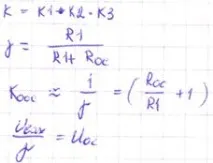 K = K1 * K2 - K3
γ = R1 / (R1 + Roc)
Kooc ≈ 1/γ = (Roc/R1 + 1)
Uвых/γ = Uoc